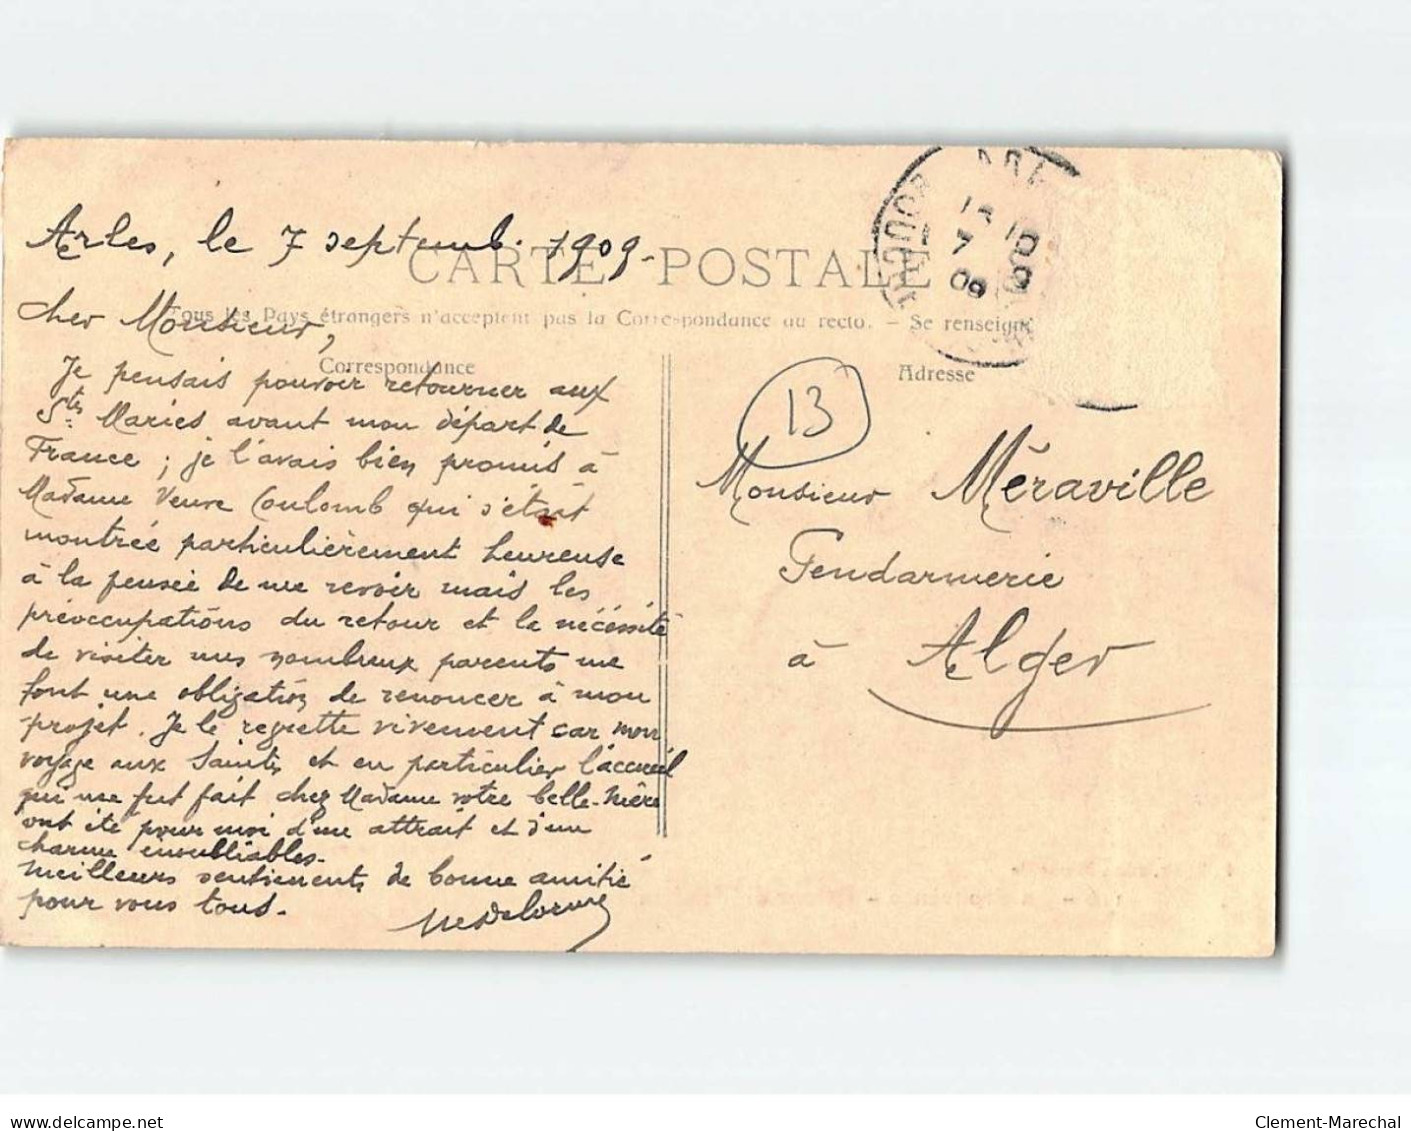 Arles, le 7 septemb. 1909.
CARTE POSTALE
Tous les Pays étrangers n'acceptent pas la Correspondance au recto. - Se renseign
Correspondance
Cher Monsieur,
Je pensais pouvoir retourner aux
Stes Maries avant mon départ de
France ; je l'avais bien promis à
Madame Veuve Coulomb qui s'était
montrée particulièrement heureuse
à la pensée de me revoir mais les
préoccupations du retour et la nécéssité
de visiter mes nombreux parents me
font une obligation de renoncer à mon
projet. Je le regrette vivement car mon
voyage aux Saintes et en particulier l'accueil
qui me fut fait chez Madame votre belle-mère
ont été pour moi d'un attrait et d'un
charme inoubliables.
Meilleurs sentiments de bonne amitié
pour vous tous.
Adresse
13
Monsieur Méraville
Gendarmerie
à Alger
7
09
delcampe.net
Clement-Marechal